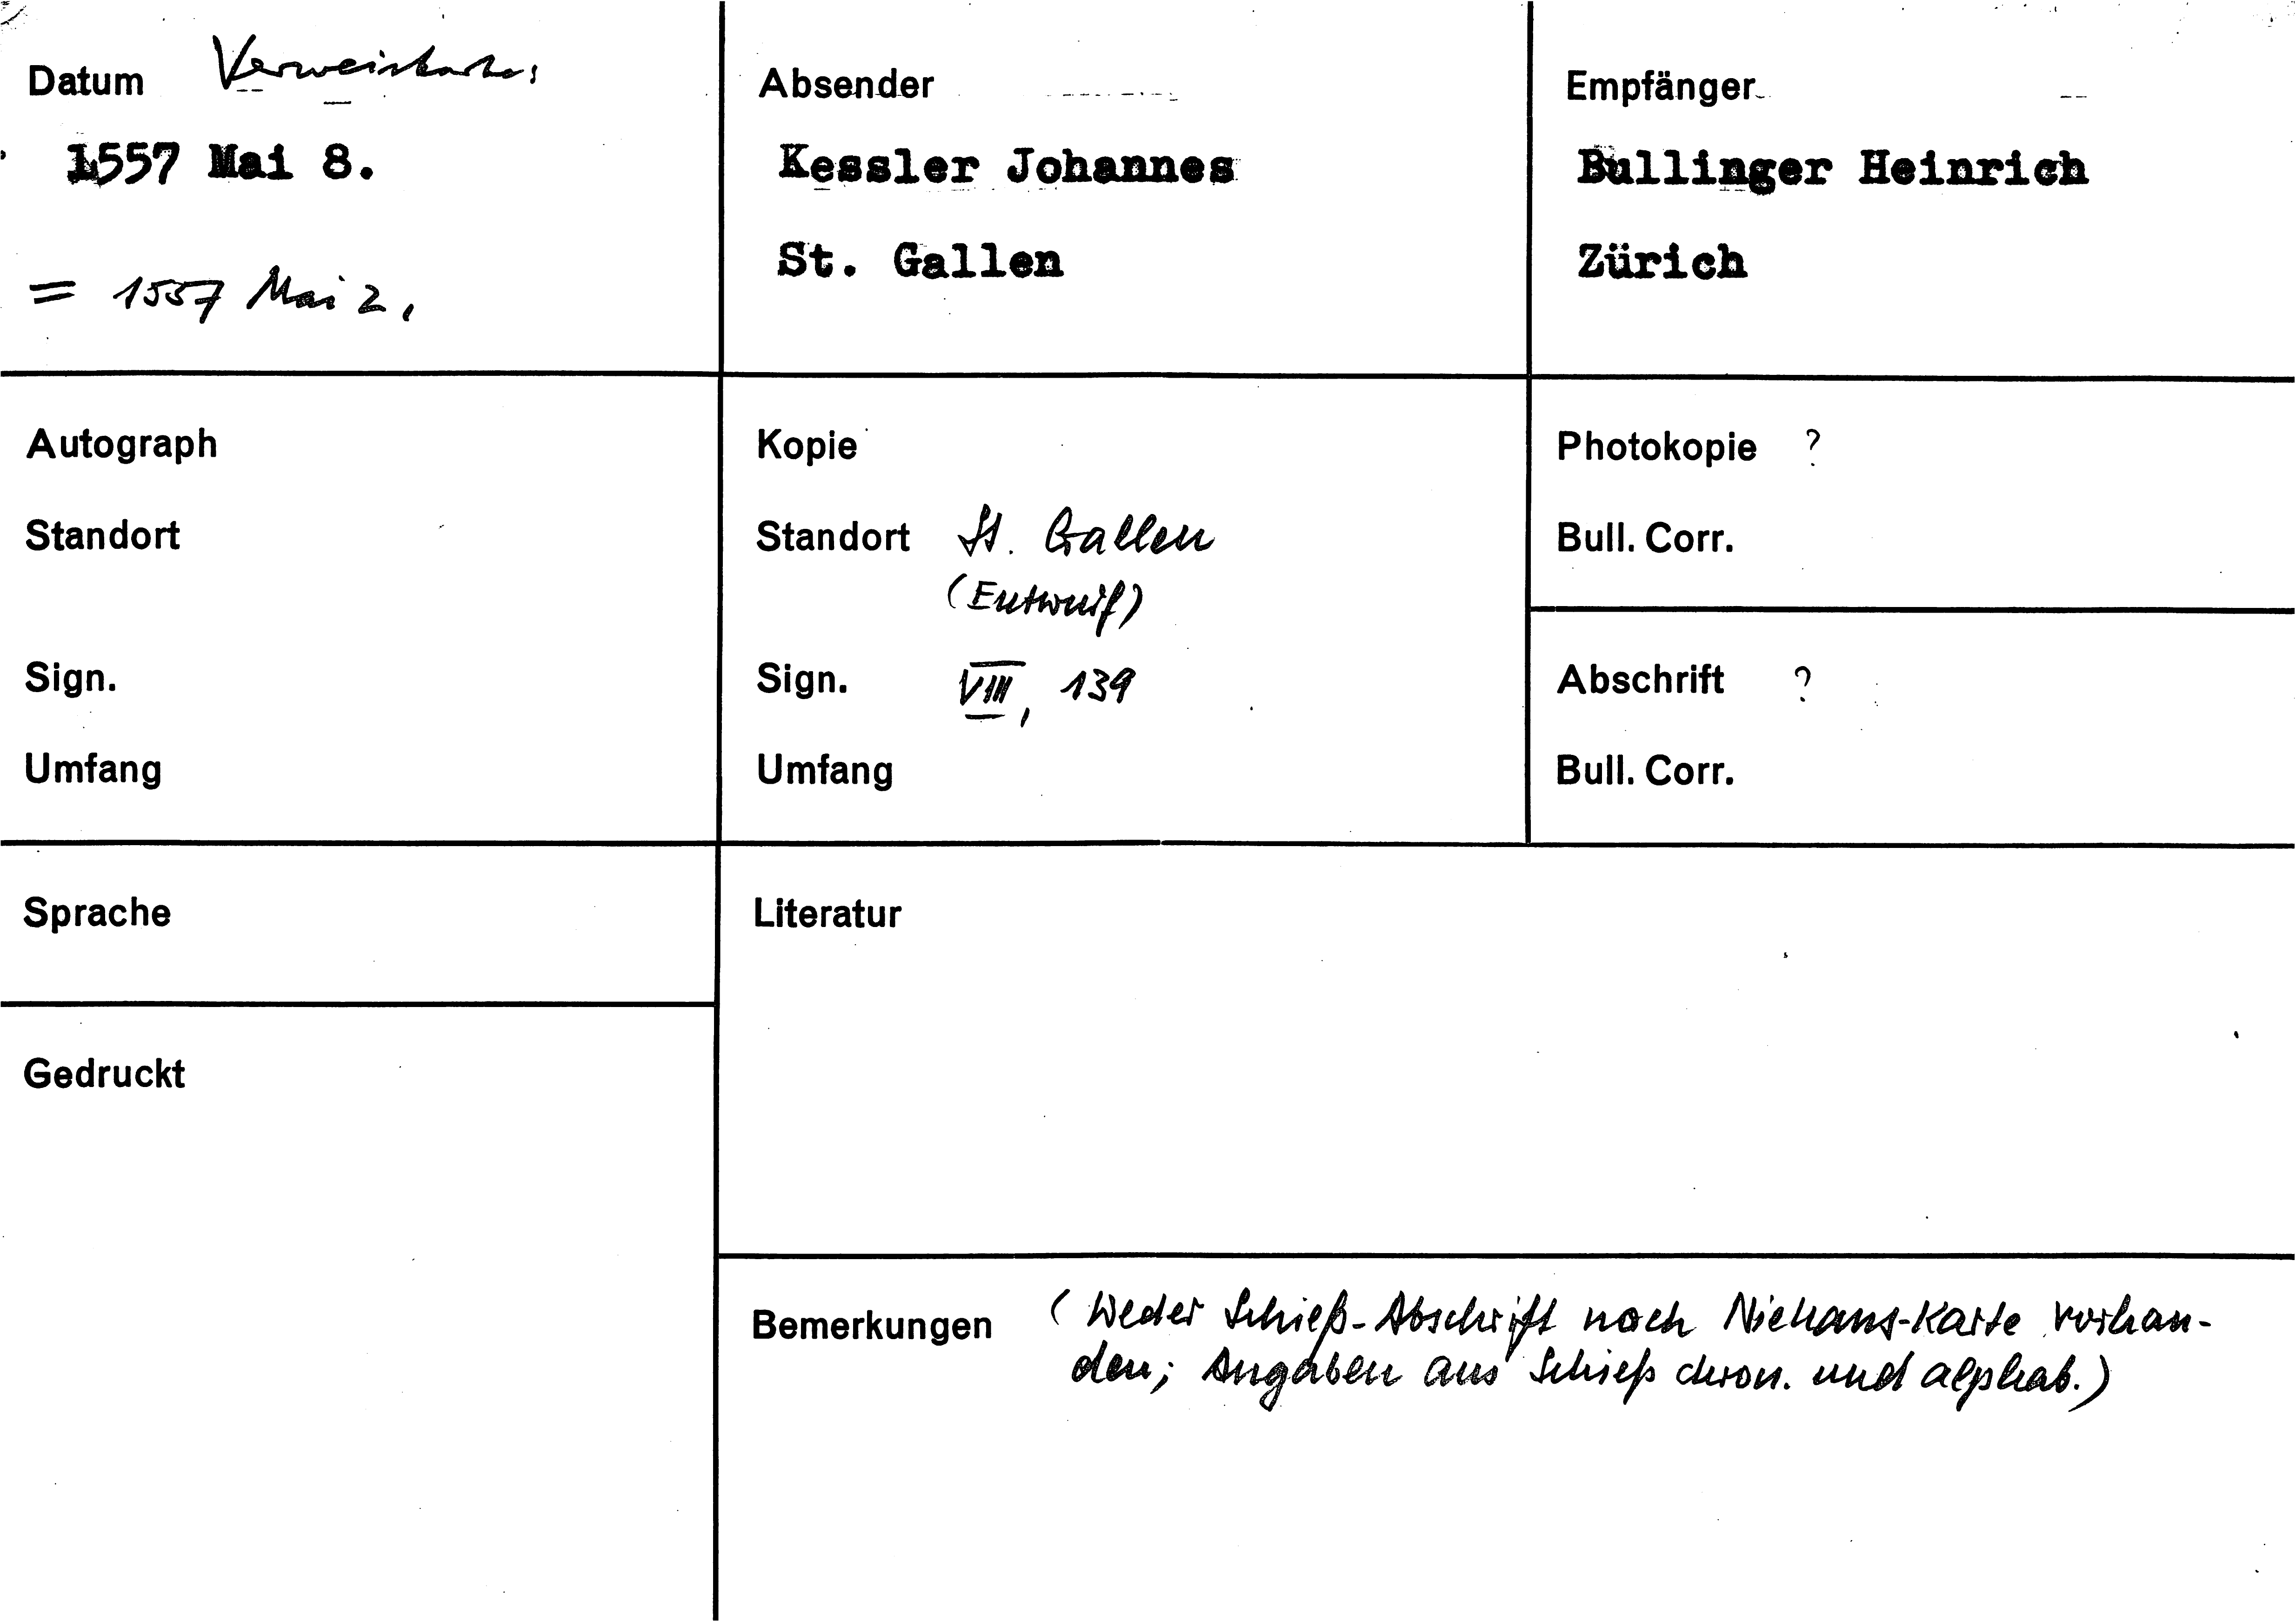 Datum Verweiskarte!
1557 Mai 8.
= 1557 Mai 2.
Absender
Kessler Johannes
St. Gallen
Empfänger
Bullinger Heinrich
Zürich
Autograph
Standort
Sign.
Umfang
Kopie
Standort St. Gallen
(Entwurf)
Sign. VIII, 139
Umfang
Photokopie ?
Bull. Corr.
Abschrift ?
Bull. Corr.
Sprache
Gedruckt
Literatur
Bemerkungen (Weder Schieß-Abschrift noch Niehans-Karte vorhan-
den; Angaben aus Schieß chron. und alphab.)